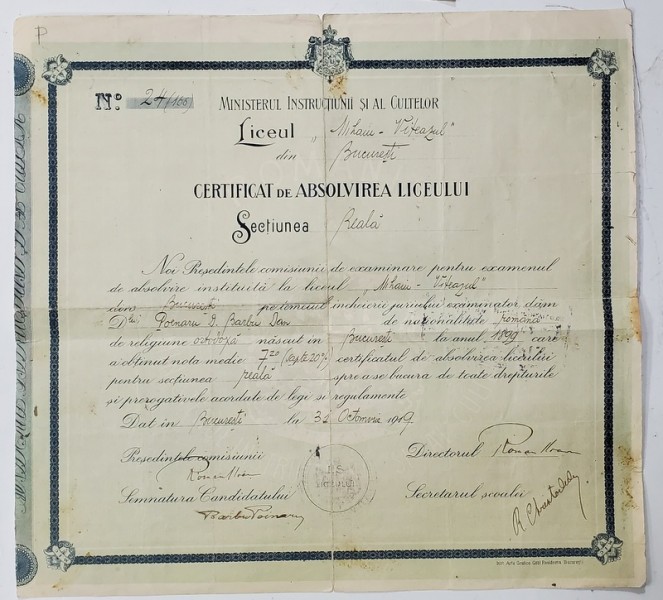 P
No. 24 (100)
MINISTERUL INSTRUCȚIUNII ȘI AL CULTELOR
Liceul „Mihaiu-Viteazul"
din București
CERTIFICAT DE ABSOLVIREA LICEULUI
Secțiunea Reală
Noi Președintele comisiunii de examinare pentru examenul
de absolvire instituită la liceul „Mihaiu-Viteazul"
din București pe temeiul încheierii juriului examinator dăm
Dlui Poenaru D. Barbu Dem de naționalitate română
de religiune ortodoxă născut în București la anul 1899 care
a obținut nota medie 7.20 (șapte 20%) certificatul de absolvirea liceului
pentru secțiunea reală spre a se bucura de toate drepturile
și prerogativele acordate de legi și regulamente
Dat în București la 31 Octomvrie 1919
Președintele comisiunii
Directorul
Semnătura Candidatului
Secretarul școalei
Barbu Poenaru